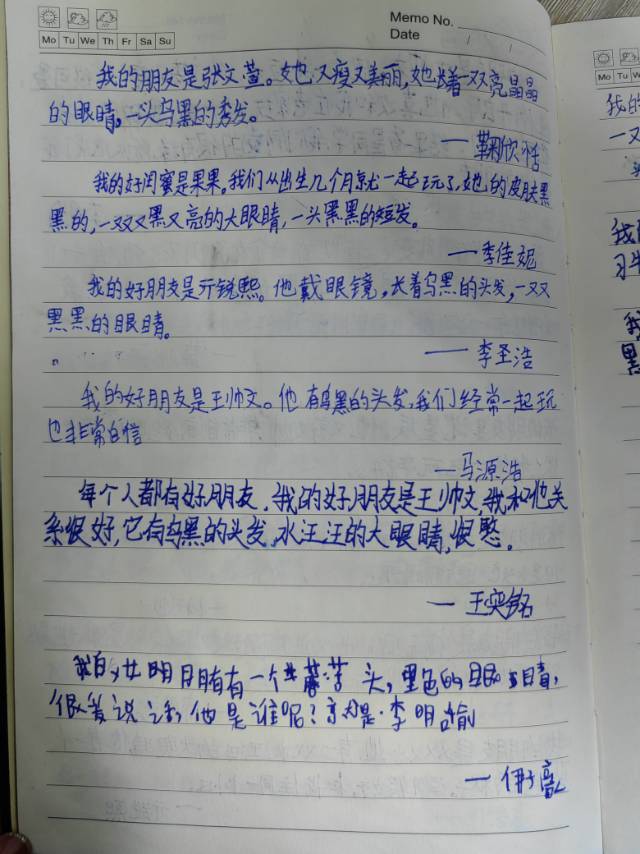 Memo No.
Mo Tu We Th Fr Sa Su
Date / /
我的朋友是张文萱。她又瘦又美丽,她长着一双亮晶晶
的眼睛,一头乌黑的秀发。
——鞠欣恬
我的好闺蜜是果果。我们从出生几个月就一起玩了,她的皮肤黑
黑的,一双又黑又亮的大眼睛,一头黑黑的短发。
——李佳妮
我的好朋友是亓锐熙。他戴眼镜,长着乌黑的头发,一双
黑黑的眼睛。
——李圣浩
我的好朋友是王帅文。他有乌黑的头发,我们经常一起玩
也非常自信
——马源浩
每个人都有好朋友,我的好朋友是王帅文,我和他关
系很好,它有乌黑的头发,水汪汪的大眼睛,很憨。
——王奕铭
我的好朋有有一个蘑菇头,黑色的眼睛,
很爱说话,他是谁呢?就是李明
Mo Tu W